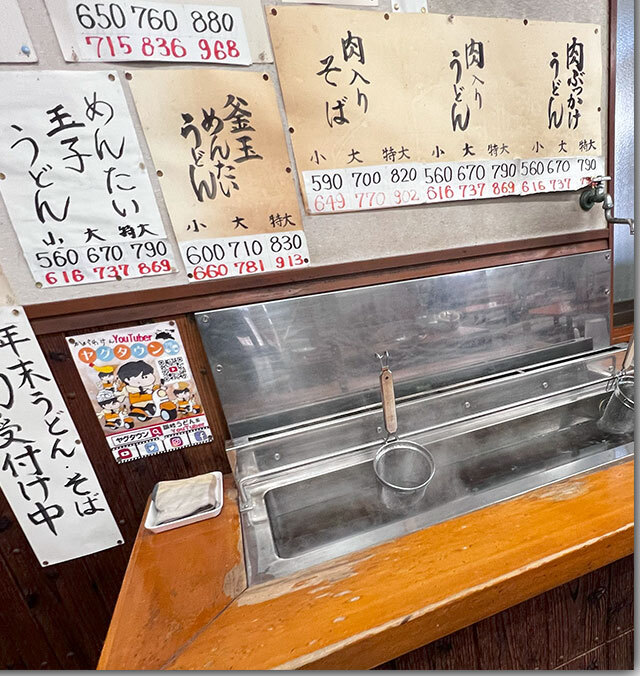 650 760 880
715 836 968
めんたい
玉子
うどん
小 大 特大
560 670 790
616 737 869
釜玉
めんたい
うどん
小 大 特大
600 710 830
660 781 913
肉入り
そば
小 大 特大
590 700 820
649 770 902
肉入り
うどん
小 大 特大
560 670 790
616 737 869
肉ぶっかけ
うどん
小 大 特大
560 670 790
616 737
YouTuber
ヤクタウン
ヤクタウン
YouTube
年末うどん・そば
受付け中